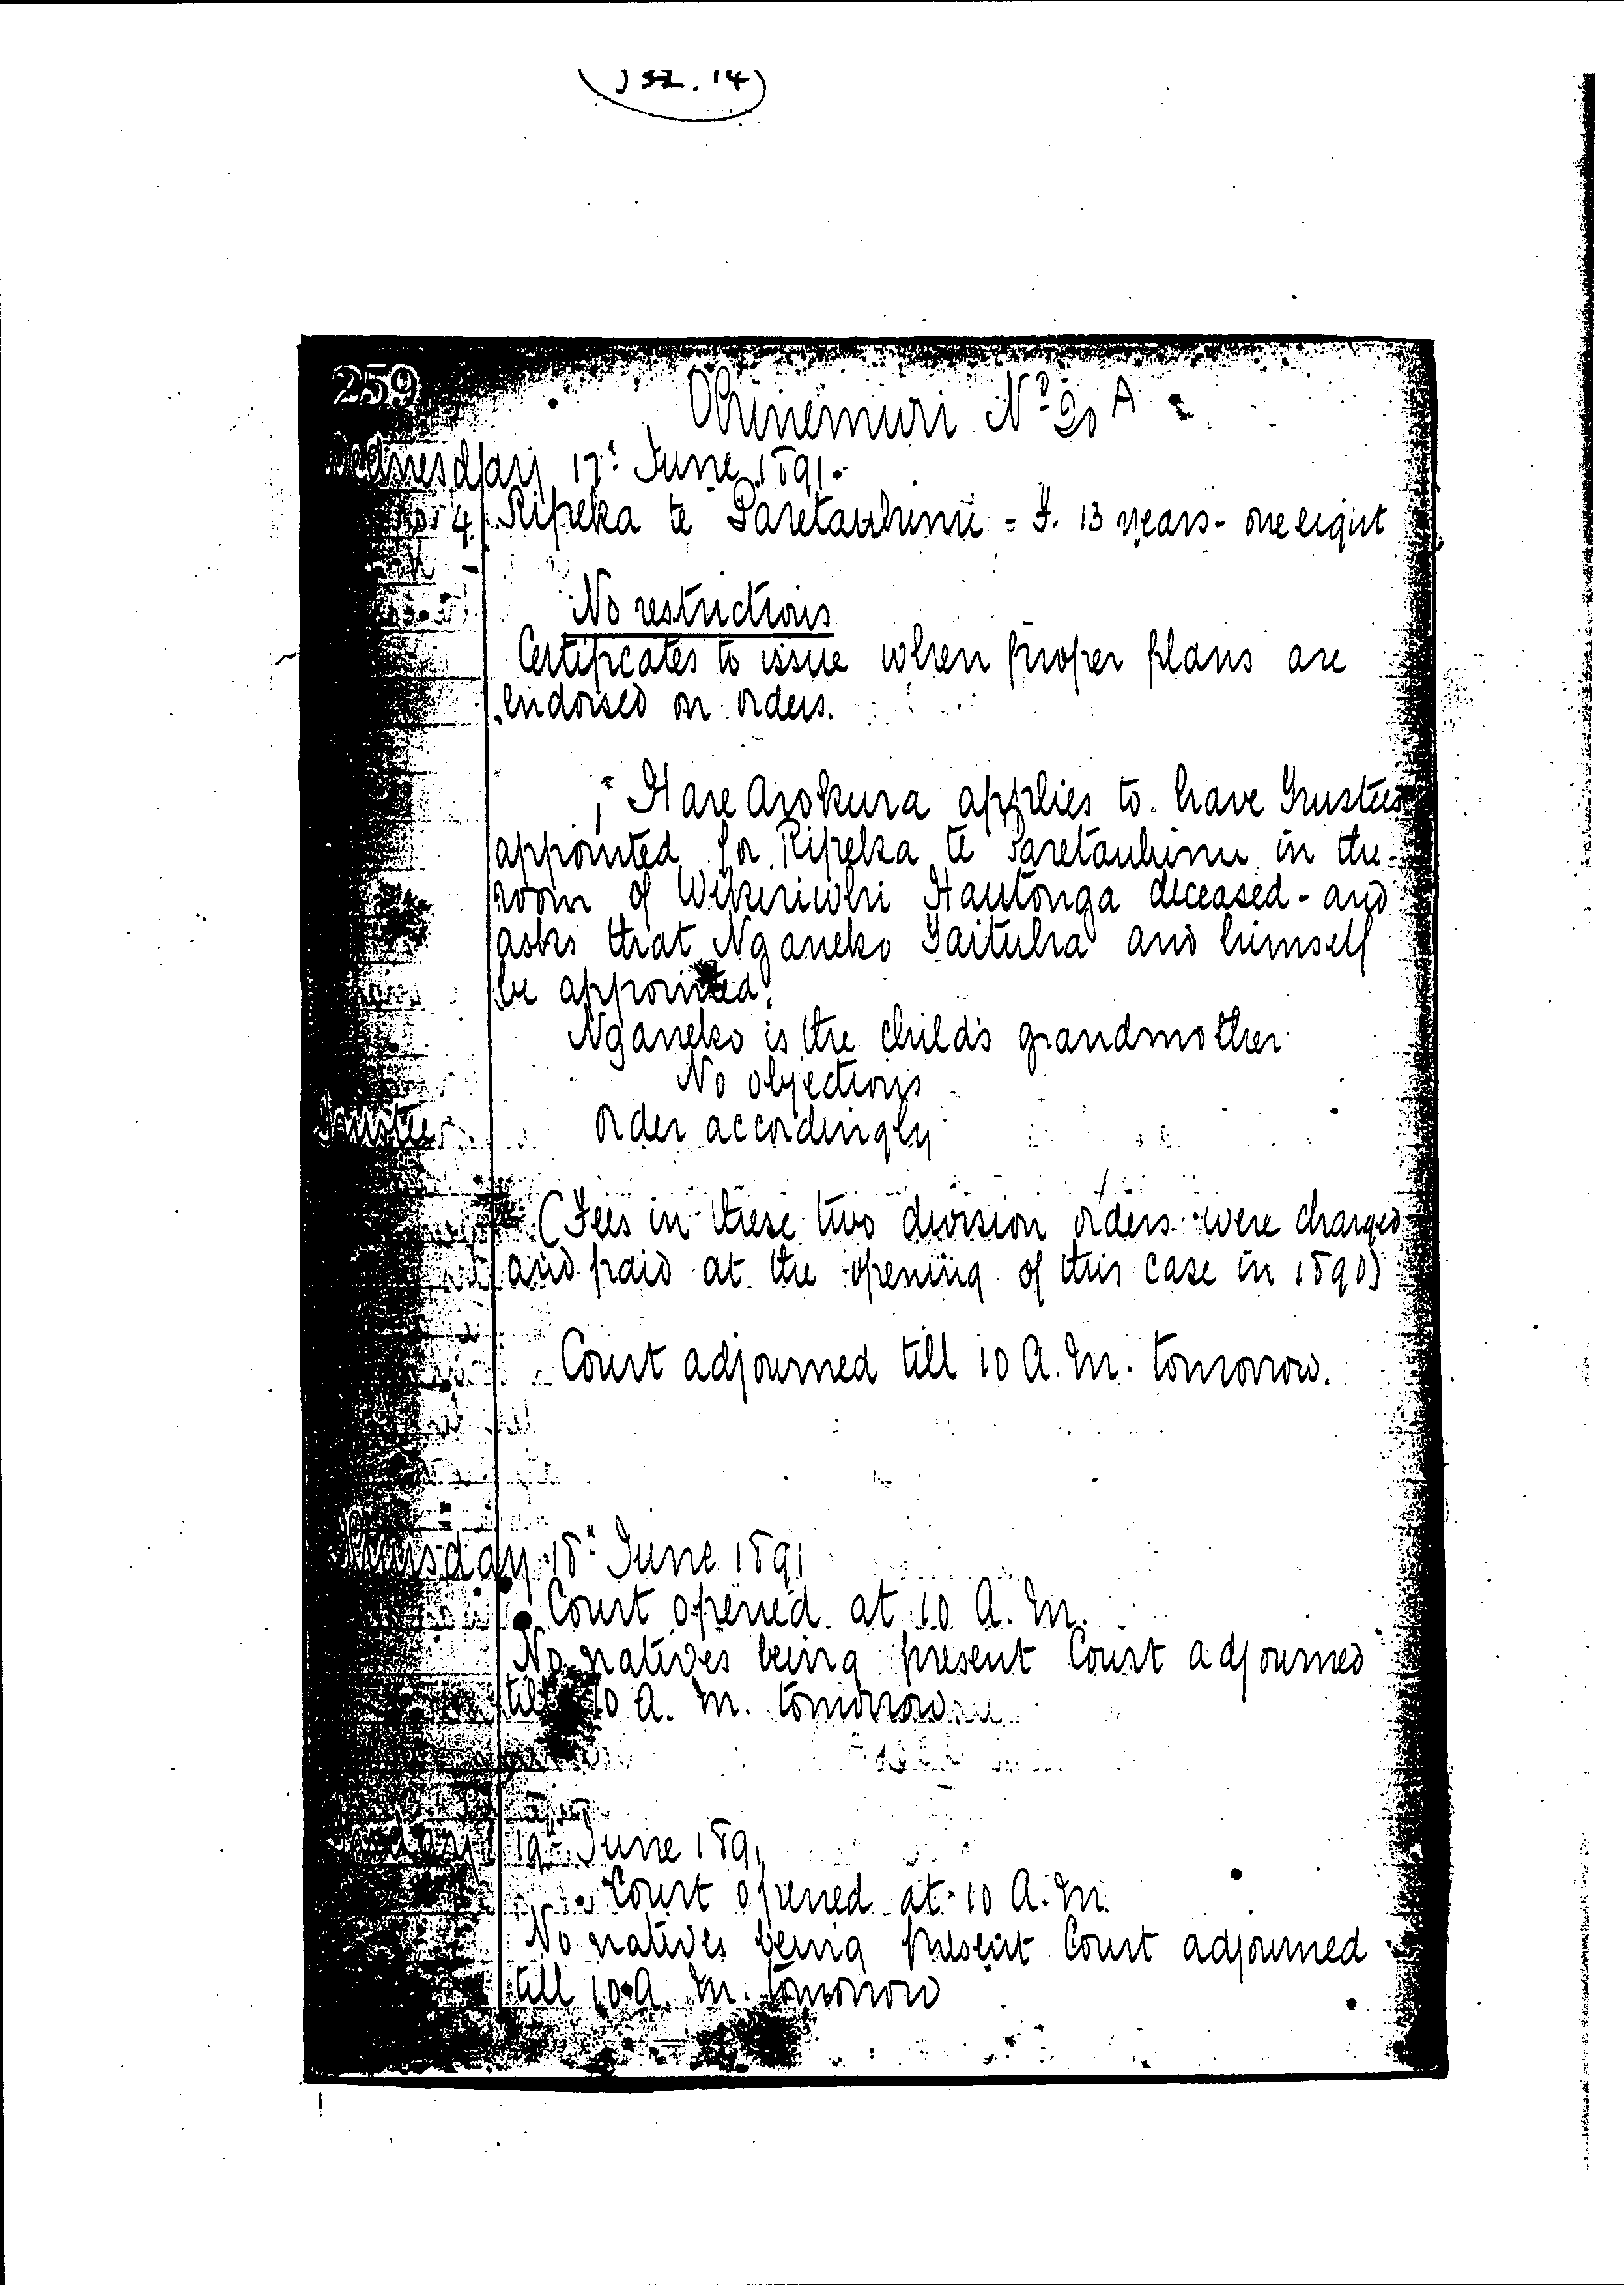 J 52. 14
259
Ohinemuri No 20 A
Wednesday 17th June 1891.
4. Ripeka te Paretauhinu = F. 13 years - one eight
No restrictions
Certificates to issue when proper plans are
endorsed on orders.
Hare Arokura applies to have Trustees
appointed for Ripeka te Paretauhinu in the
room of Wikiriwhi Hautonga deceased - and
asks that Nganeko Taituha and himself
be appointed.
Nganeko is the child's grandmother
No objections
Trustee Order accordingly
(Fees in these two division orders were charged
and paid at the opening of this case in 1890)
Court adjourned till 10 A.M. tomorrow.
Thursday 18th June 1891
Court opened at 10 A.M.
No natives being present Court adjourned
till 10 A.M. tomorrow
19th June 1891
Court opened at 10 A.M.
No natives being present Court adjourned
till 10 A.M. tomorrow